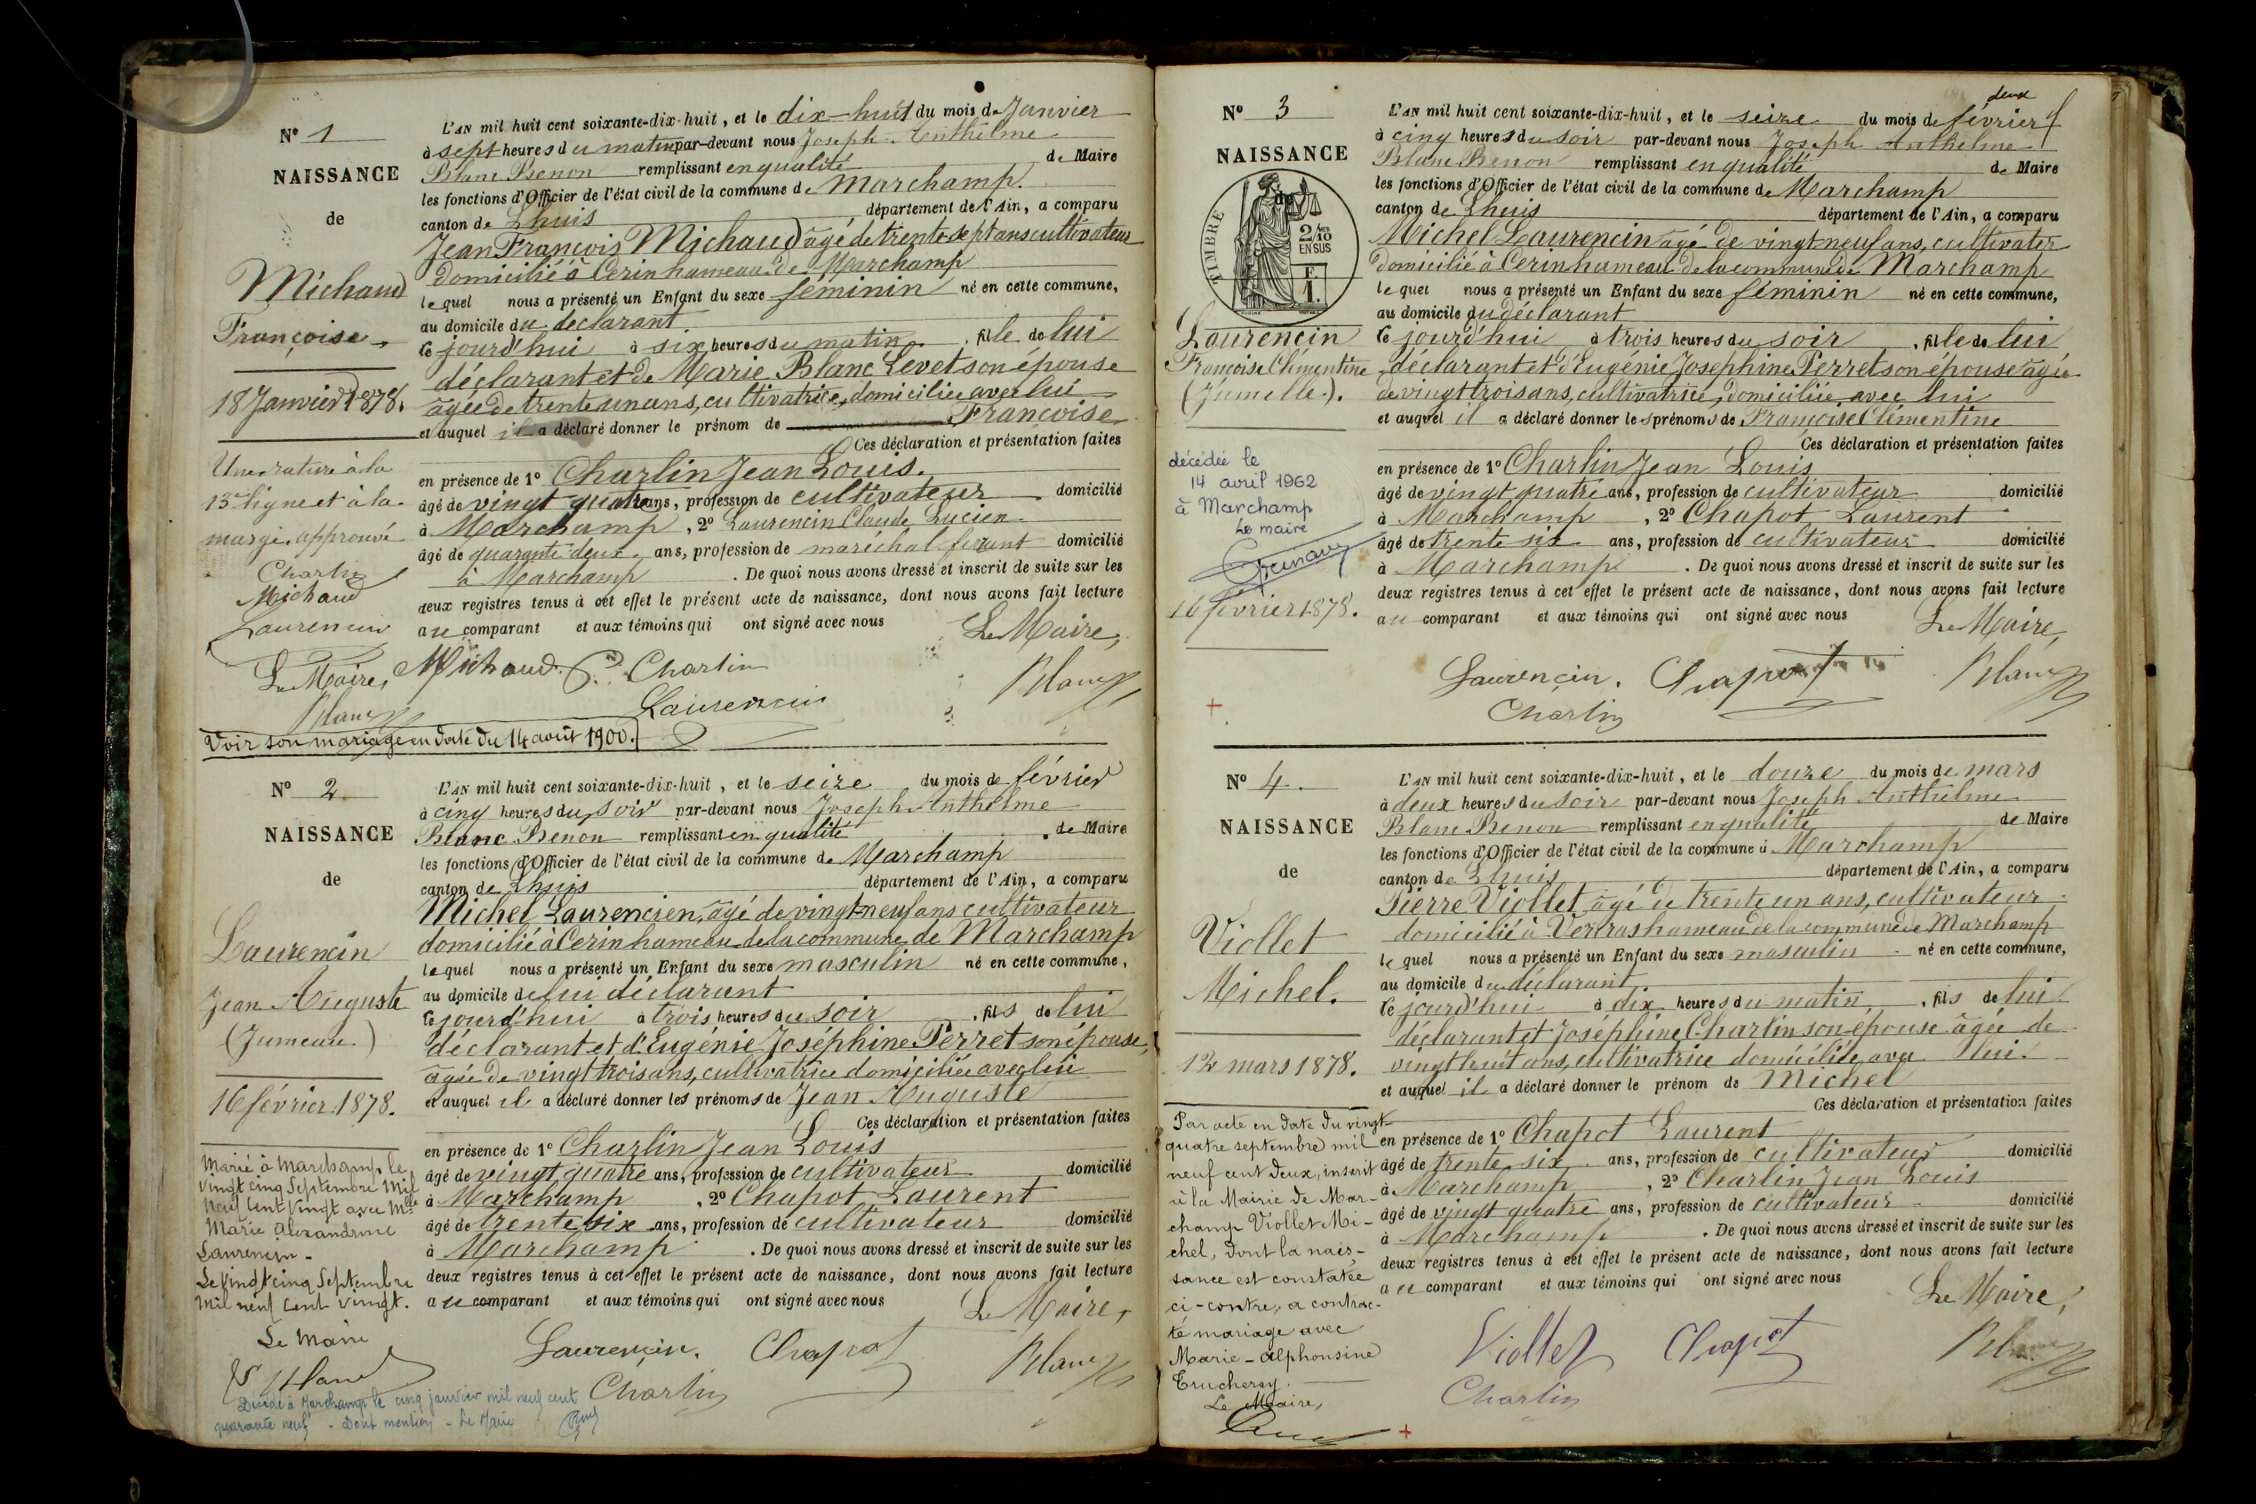 N° 1
NAISSANCE
de
Michaud
Françoise
18 Janvier 1878.
Une rature à la
13e ligne et à la
marge, approuvé
Charlin
Michaud
Laurencin
Le Maire,
Blanc
Voir son mariage en date du 14 août 1900.
L'AN mil huit cent soixante-dix-huit, et le dix-huit du mois de Janvier
à sept heures du matin par-devant nous Joseph Anthelme
Blanc Benon remplissant en qualité de Maire
les fonctions d'Officier de l'état civil de la commune de Marchamp
canton de Lhuis département de l'Ain, a comparu
Jean François Michaud âgé de trente sept ans cultivateur
domicilié à Cerin hameau de Marchamp
lequel nous a présenté un Enfant du sexe féminin né en cette commune,
au domicile du déclarant
ce jourd'hui à six heures du matin, fille de lui
déclarant et de Marie Blanc Levet son épouse
âgée de trente un ans, cultivatrice, domiciliée avec lui
et auquel il a déclaré donner le prénom de Françoise
Ces déclaration et présentation faites
en présence de 1° Charlin Jean Louis
âgé de vingt quatre ans, profession de cultivateur domicilié
à Marchamp, 2° Laurencin Claude Lucien
âgé de quarante deux ans, profession de maréchal ferrant domicilié
à Marchamp. De quoi nous avons dressé et inscrit de suite sur les
deux registres tenus à cet effet le présent acte de naissance, dont nous avons fait lecture
au comparant et aux témoins qui ont signé avec nous
Le Maire,
Michaud Charlin
Laurencin
Blanc
N° 2
NAISSANCE
de
Laurencin
Jean Auguste
(Jumeau)
16 février 1878.
Marié à Marchamp le
vingt cinq Septembre Mil
Neuf Cent Vingt avec Melle
Marie Alexandrine
Laurencin -
Le vingt cinq Septembre
Mil neuf cent vingt.
Le Maire
Décédé à Marchamp le cinq janvier mil neuf cent
quarante neuf. - Dont mention - Le Maire
L'AN mil huit cent soixante-dix-huit, et le seize du mois de février
à cinq heures du soir par-devant nous Joseph Anthelme
Blanc Benon remplissant en qualité de Maire
les fonctions d'Officier de l'état civil de la commune de Marchamp
canton de Lhuis département de l'Ain, a comparu
Michel Laurencien, âgé de vingt-neuf ans cultivateur
domicilié à Cerin hameau de la commune de Marchamp
lequel nous a présenté un Enfant du sexe masculin né en cette commune,
au domicile de lui déclarant
ce jourd'hui à trois heures du soir, fils de lui
déclarant et d'Eugénie Joséphine Perret son épouse,
âgée de vingt trois ans, cultivatrice domiciliée avec lui
et auquel il a déclaré donner les prénoms de Jean Auguste
Ces déclaration et présentation faites
en présence de 1° Charlin Jean Louis
âgé de vingt quatre ans, profession de cultivateur domicilié
à Marchamp, 2° Chapot Laurent
âgé de trente six ans, profession de cultivateur domicilié
à Marchamp. De quoi nous avons dressé et inscrit de suite sur les
deux registres tenus à cet effet le présent acte de naissance, dont nous avons fait lecture
au comparant et aux témoins qui ont signé avec nous
Le Maire,
Laurencin. Chapot
Charlin
Blanc
N° 3
NAISSANCE
de
TIMBRE
2/10
EN SUS
Laurencin
Françoise Clémentine
(Jumelle).
décédée le
14 avril 1962
à Marchamp
Le maire
16 février 1878.
deux
L'AN mil huit cent soixante-dix-huit, et le seize du mois de février
à cinq heures du soir par-devant nous Joseph Anthelme
Blanc Benon remplissant en qualité de Maire
les fonctions d'Officier de l'état civil de la commune de Marchamp
canton de Lhuis département de l'Ain, a comparu
Michel Laurencin âgé de vingt neuf ans, cultivater
domicilié à Cerin hameau de la commune de Marchamp
lequel nous a présenté un Enfant du sexe féminin né en cette commune,
au domicile du déclarant
ce jourd'hui à trois heures du soir, fille de lui
déclarant et d'Eugénie Josephine Perret son épouse âgée
de vingt trois ans, cultivatrice, domiciliée avec lui
et auquel il a déclaré donner les prénoms de Françoise Clémentine
Ces déclaration et présentation faites
en présence de 1° Charlin Jean Louis
âgé de vingt quatre ans, profession de cultivateur domicilié
à Marchamp, 2° Chapot Laurent
âgé de trente six ans, profession de cultivateur domicilié
à Marchamp. De quoi nous avons dressé et inscrit de suite sur les
deux registres tenus à cet effet le présent acte de naissance, dont nous avons fait lecture
au comparant et aux témoins qui ont signé avec nous
Le Maire,
Laurencin. Chapot
Charlin
Blanc
N° 4.
NAISSANCE
de
Viollet
Michel.
12 mars 1878.
Par acte en date du vingt-
quatre septembre mil
neuf cent deux, inscrit
à la Mairie de Mar-
champ Viollet Mi-
chel, dont la nais-
sance est constatée
ci-contre, a contrac-
té mariage avec
Marie-Alphonsine
Truchersy.
Le Maire,
L'AN mil huit cent soixante-dix-huit, et le douze du mois de mars
à deux heures du soir par-devant nous Joseph Anthelme
Blanc Benon remplissant en qualité de Maire
les fonctions d'Officier de l'état civil de la commune d Marchamp
canton de Lhuis département de l'Ain, a comparu
Pierre Viollet âgé de trente un ans, cultivateur
domicilié à Vercras hameau de la commune de Marchamp
lequel nous a présenté un Enfant du sexe masculin né en cette commune,
au domicile du déclarant
ce jourd'hui à dix heures du matin, fils de lui
déclarant et Joséphine Charlin son épouse âgée de
vingt huit ans, cultivatrice domiciliée avec lui.
et auquel il a déclaré donner le prénom de Michel
Ces déclaration et présentation faites
en présence de 1° Chapot Laurent
âgé de trente six ans, profession de cultivateur domicilié
à Marchamp, 2° Charlin Jean Louis
âgé de vingt quatre ans, profession de cultivateur domicilié
à Marchamp. De quoi nous avons dressé et inscrit de suite sur les
deux registres tenus à cet effet le présent acte de naissance, dont nous avons fait lecture
au comparant et aux témoins qui ont signé avec nous
Le Maire,
Viollet Chapot
Charlin
Blanc